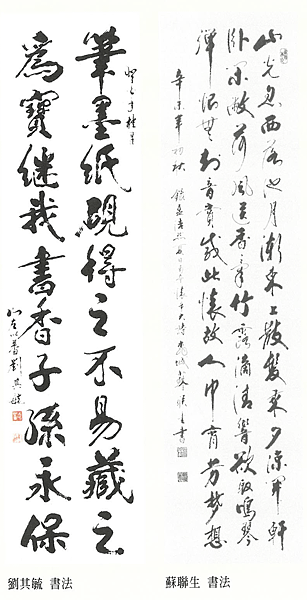 山光忽西落池月漸東上散髮乘夕涼開軒
臥閑敞荷風送香氣竹露滴清響欲取鳴琴
彈恨無知音賞感此懷故人中宵勞夢想
辛未年初秋 錄孟浩然夏日南亭懷辛大詩 蘇聯生書
筆墨紙硯得之不易藏之
為寶継我書香子孫永保
劉其毓
劉其毓 書法
蘇聯生 書法